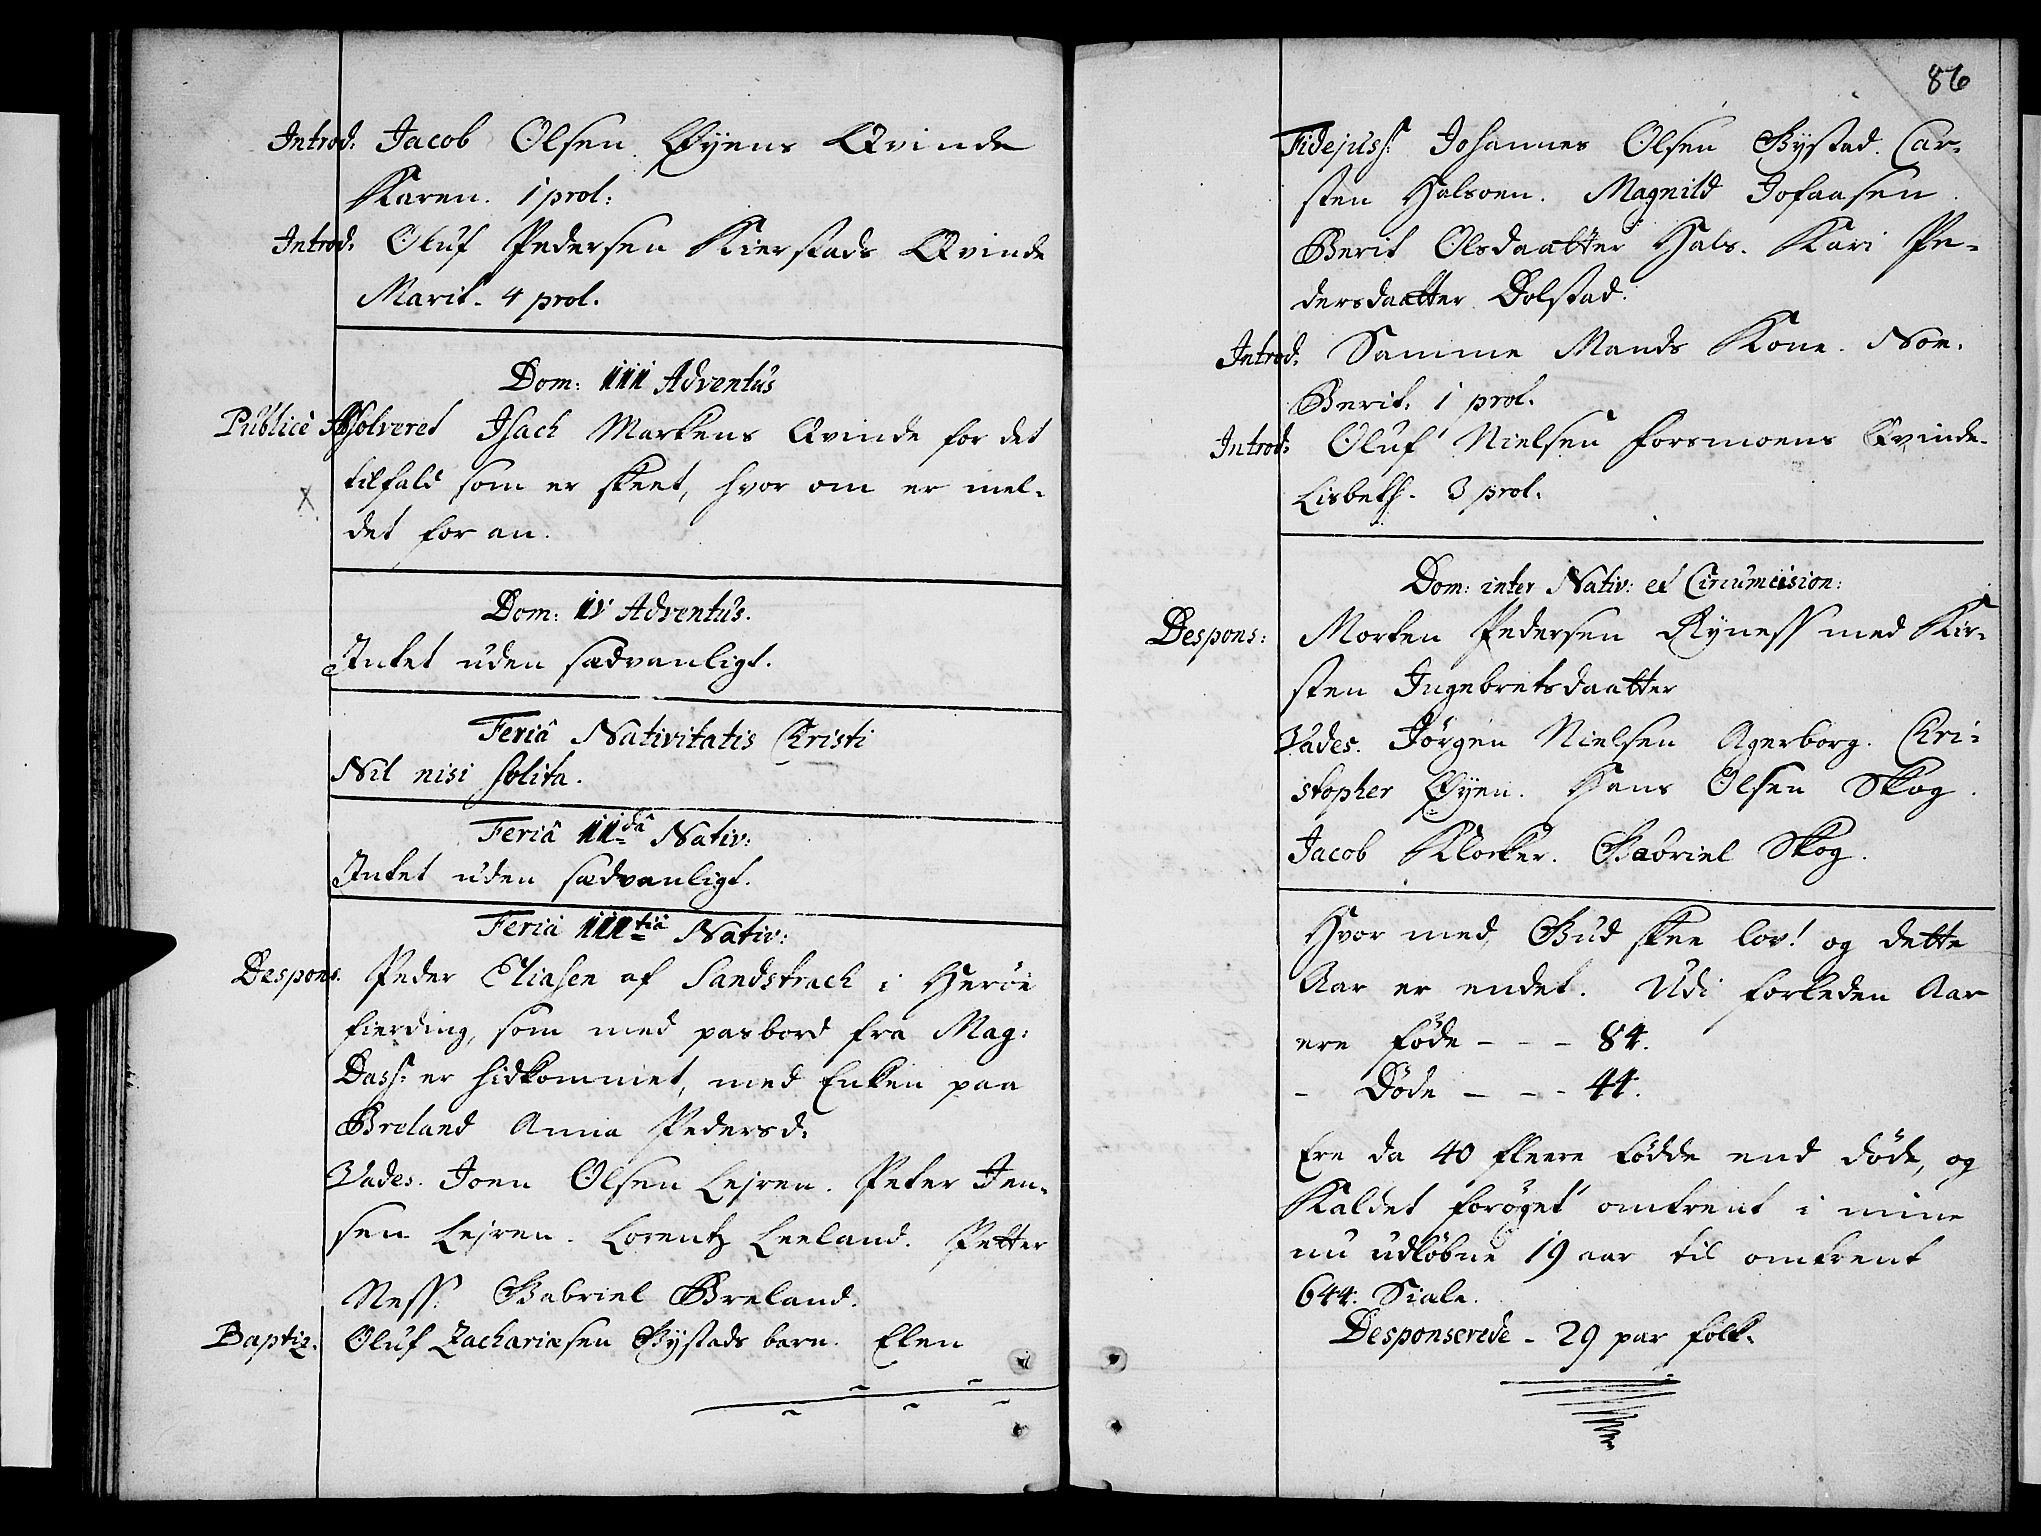 Introd: Jacob Olsen Øyens Qvinde
Karen. 1 prol:
Introd: Oluf Pedersen Kierstads Qvinde
Marit. 4 prol.
Dom: III Adventus
Publice Absolveret Isach Markens Qvinde for det
tilfald som er skeet, hvor om er mel-
X.
det for an.
Dom: IV Adventus.
Intet uden sædvanligt.
Feriâ Nativitatis Christi
Nil nisi solita.
Feriâ II dâ Nativ:
Intet uden sædvanligt.
Feriâ III tiâ Nativ:
Despons. Peder Eliasen af Sandstrach i Herøe
fierding, som med pasbord fra Mag:
Dass: er hidkommet, med Enken paa
Breland Anna Pedersd:
Vades. Joen Olsen Lejren. Peter Jen-
sen Lejren. Lorentz Leeland. Petter
Ness: Gabriel Breland.
Baptiz. Oluf Zachariæsen Bystads barn. Elen
86
Fidejuss: Johannes Olsen Bystad. Car-
sten Halsoen. Magnild Jofaasen.
Berit Olsdaatter Hals. Kari Pe-
dersdaatter Dolstad.
Introd. Samme Mands Kone. Noe.
Berit. 1 prol.
Introd: Oluf Nielsen Forsmoens Qvinde
Lisbeth. 3 prol.
Dom: inter Nativ: et Circumcision:
Despons: Morten Pedersen Ryness med Kir-
sten Ingebretsdaatter
Vades. Jørgen Nielsen Agerborg. Chri-
stopher Øyen. Hans Olsen Skog.
Jacob Klocker. Gabriel Skog.
Hvor med, Gud skee lov! og dette
Aar er endet. Udi forleden Aar
ere føde - - - 84.
- Døde - - - 44.
Ere da 40 fleere fødde end døde, og
Kaldet forøget omtrent i mine
nu udløbne 19 aar til omtrent
644. Siæle.
Desponserede - 29 par folk.